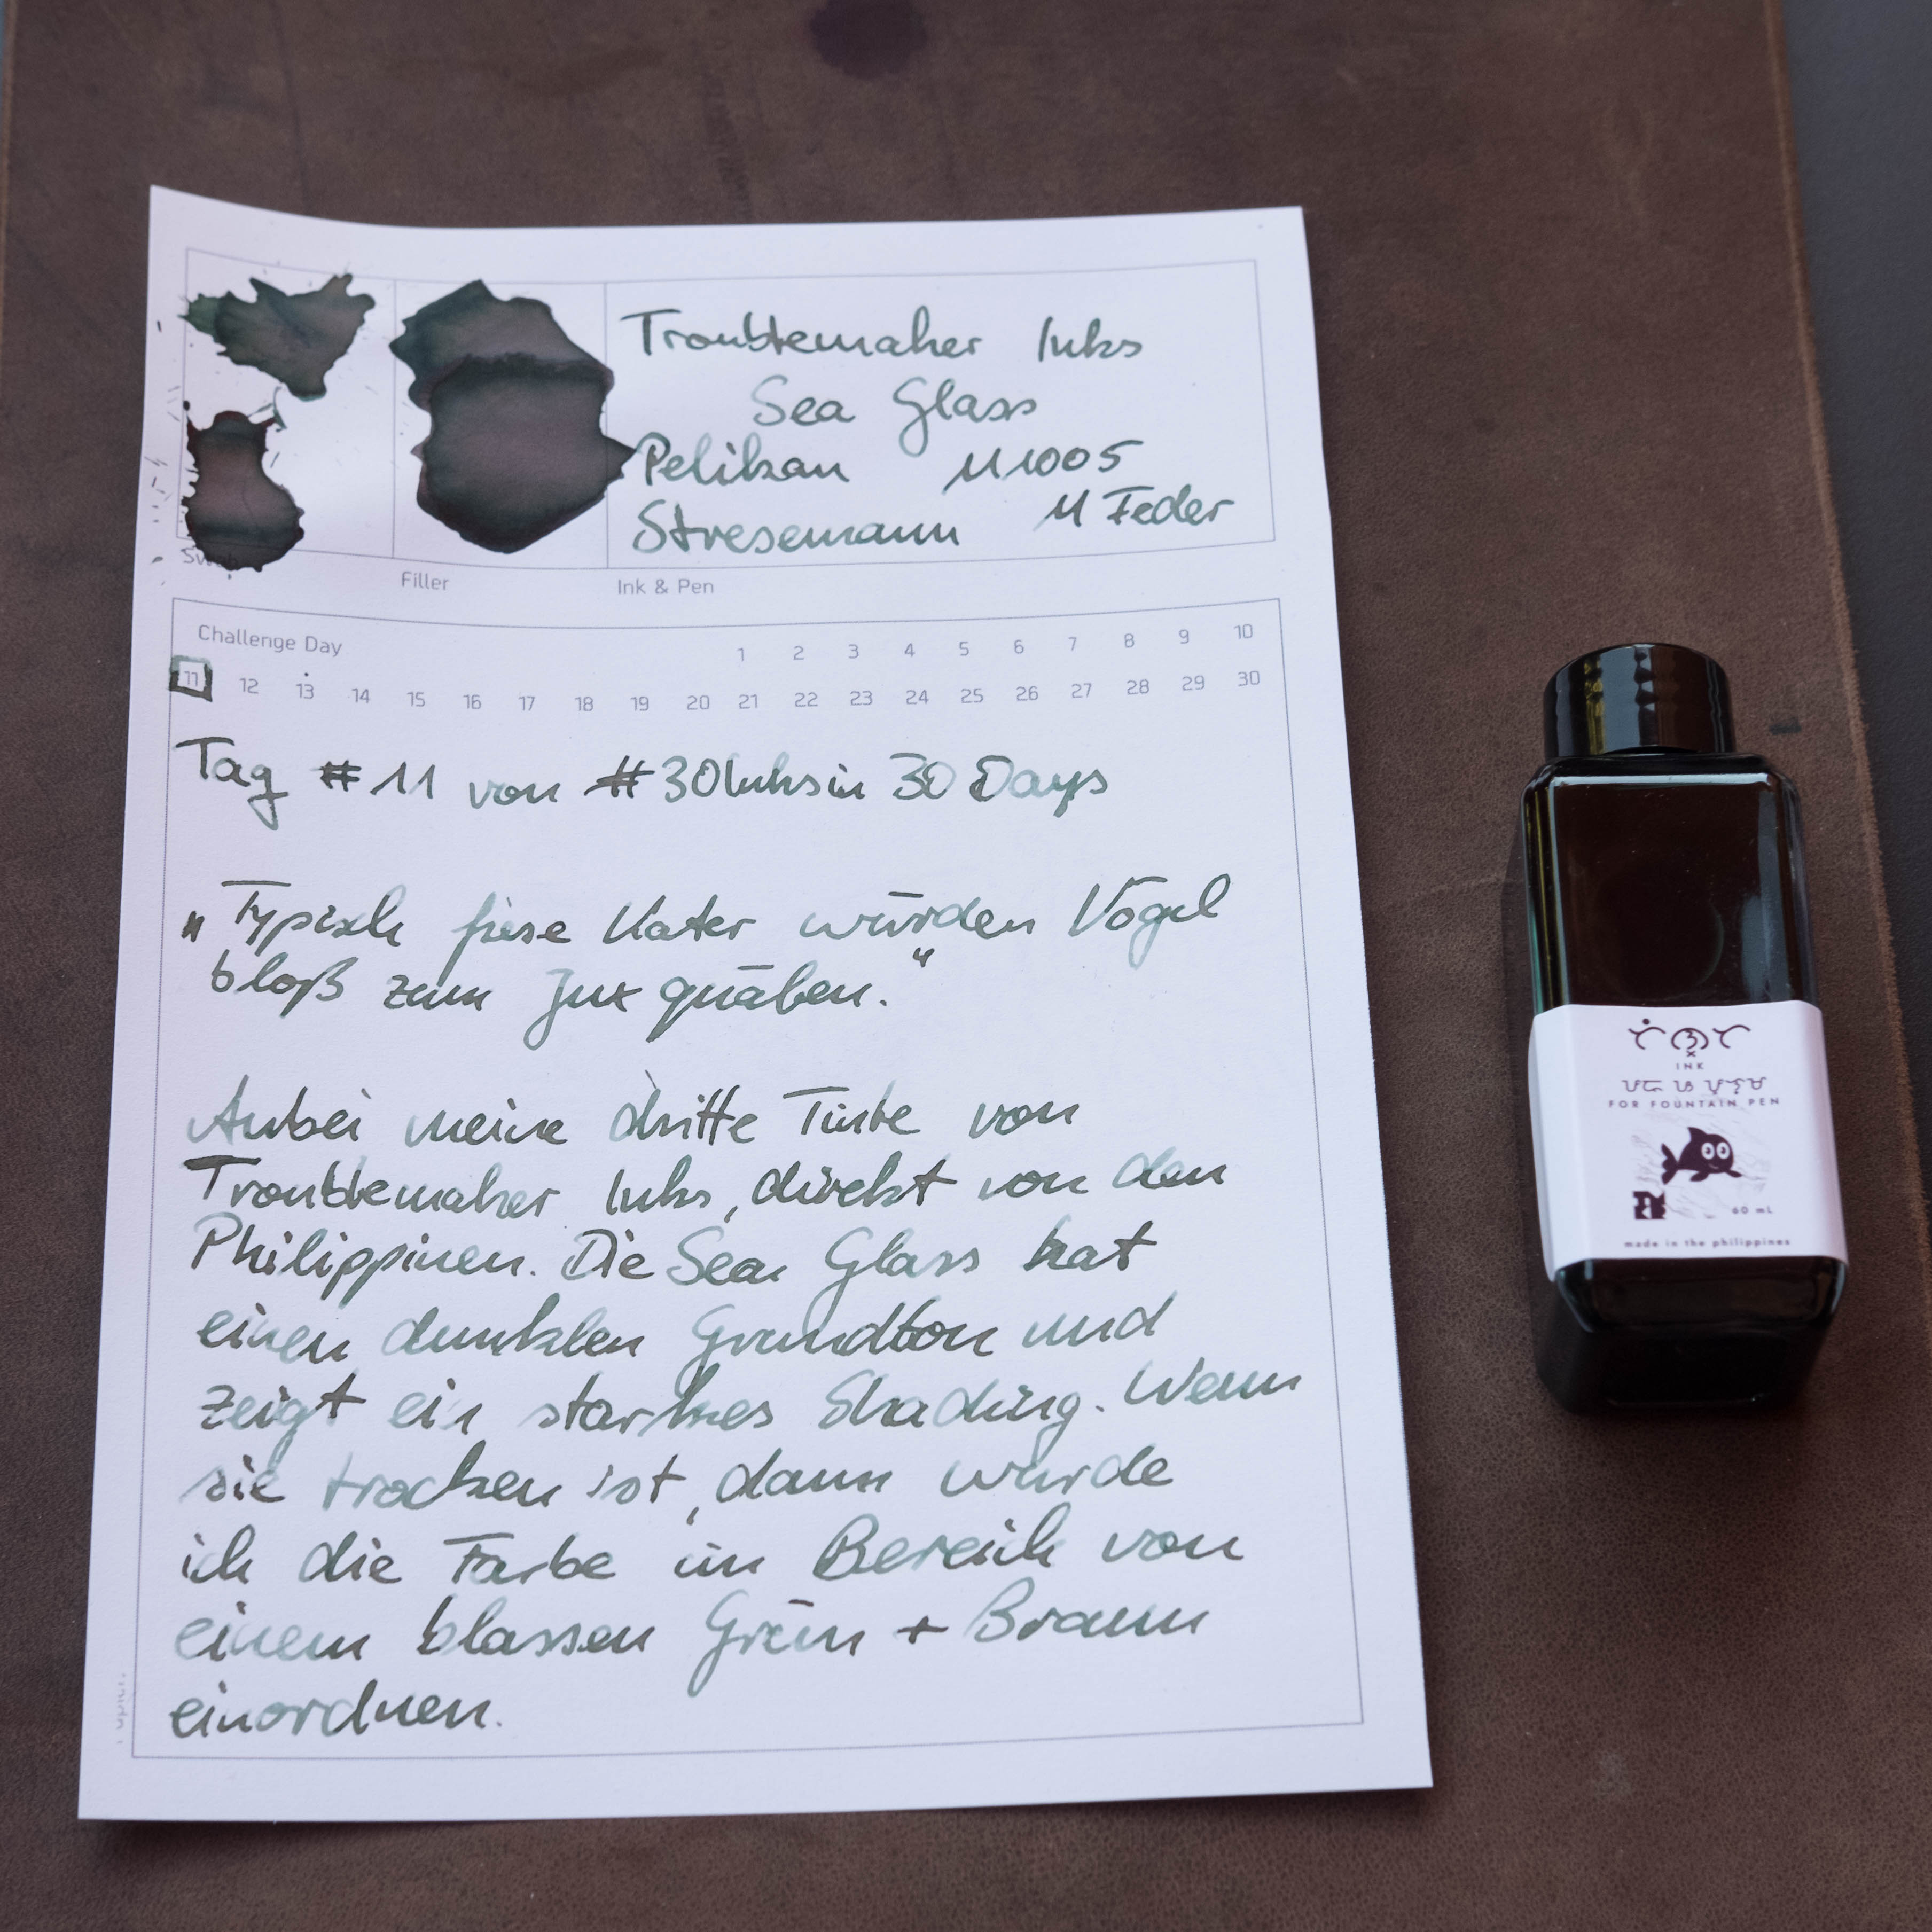 Troublemaker Inks
Sea Glass
Pelikan M1005
Stresemann M Feder
Swab
Filler
Ink & Pen
Challenge Day
1 2 3 4 5 6 7 8 9 10
11 12 13 14 15 16 17 18 19 20 21 22 23 24 25 26 27 28 29 30
Tag #11 von #30Inksin30Days
„Typisch fiese Kater würden Vögel
bloß zum Jux quälen."
Anbei meine dritte Tinte von
Troublemaker Inks, direkt von den
Philippinen. Die Sea Glass hat
einen dunklen Grundton und
zeigt ein starkes Shading. Wenn
sie trocken ist, dann würde
ich die Farbe im Bereich von
einem blassen Grün + Braun
einordnen.
INK
FOR FOUNTAIN PEN
60 mL
made in the philippines